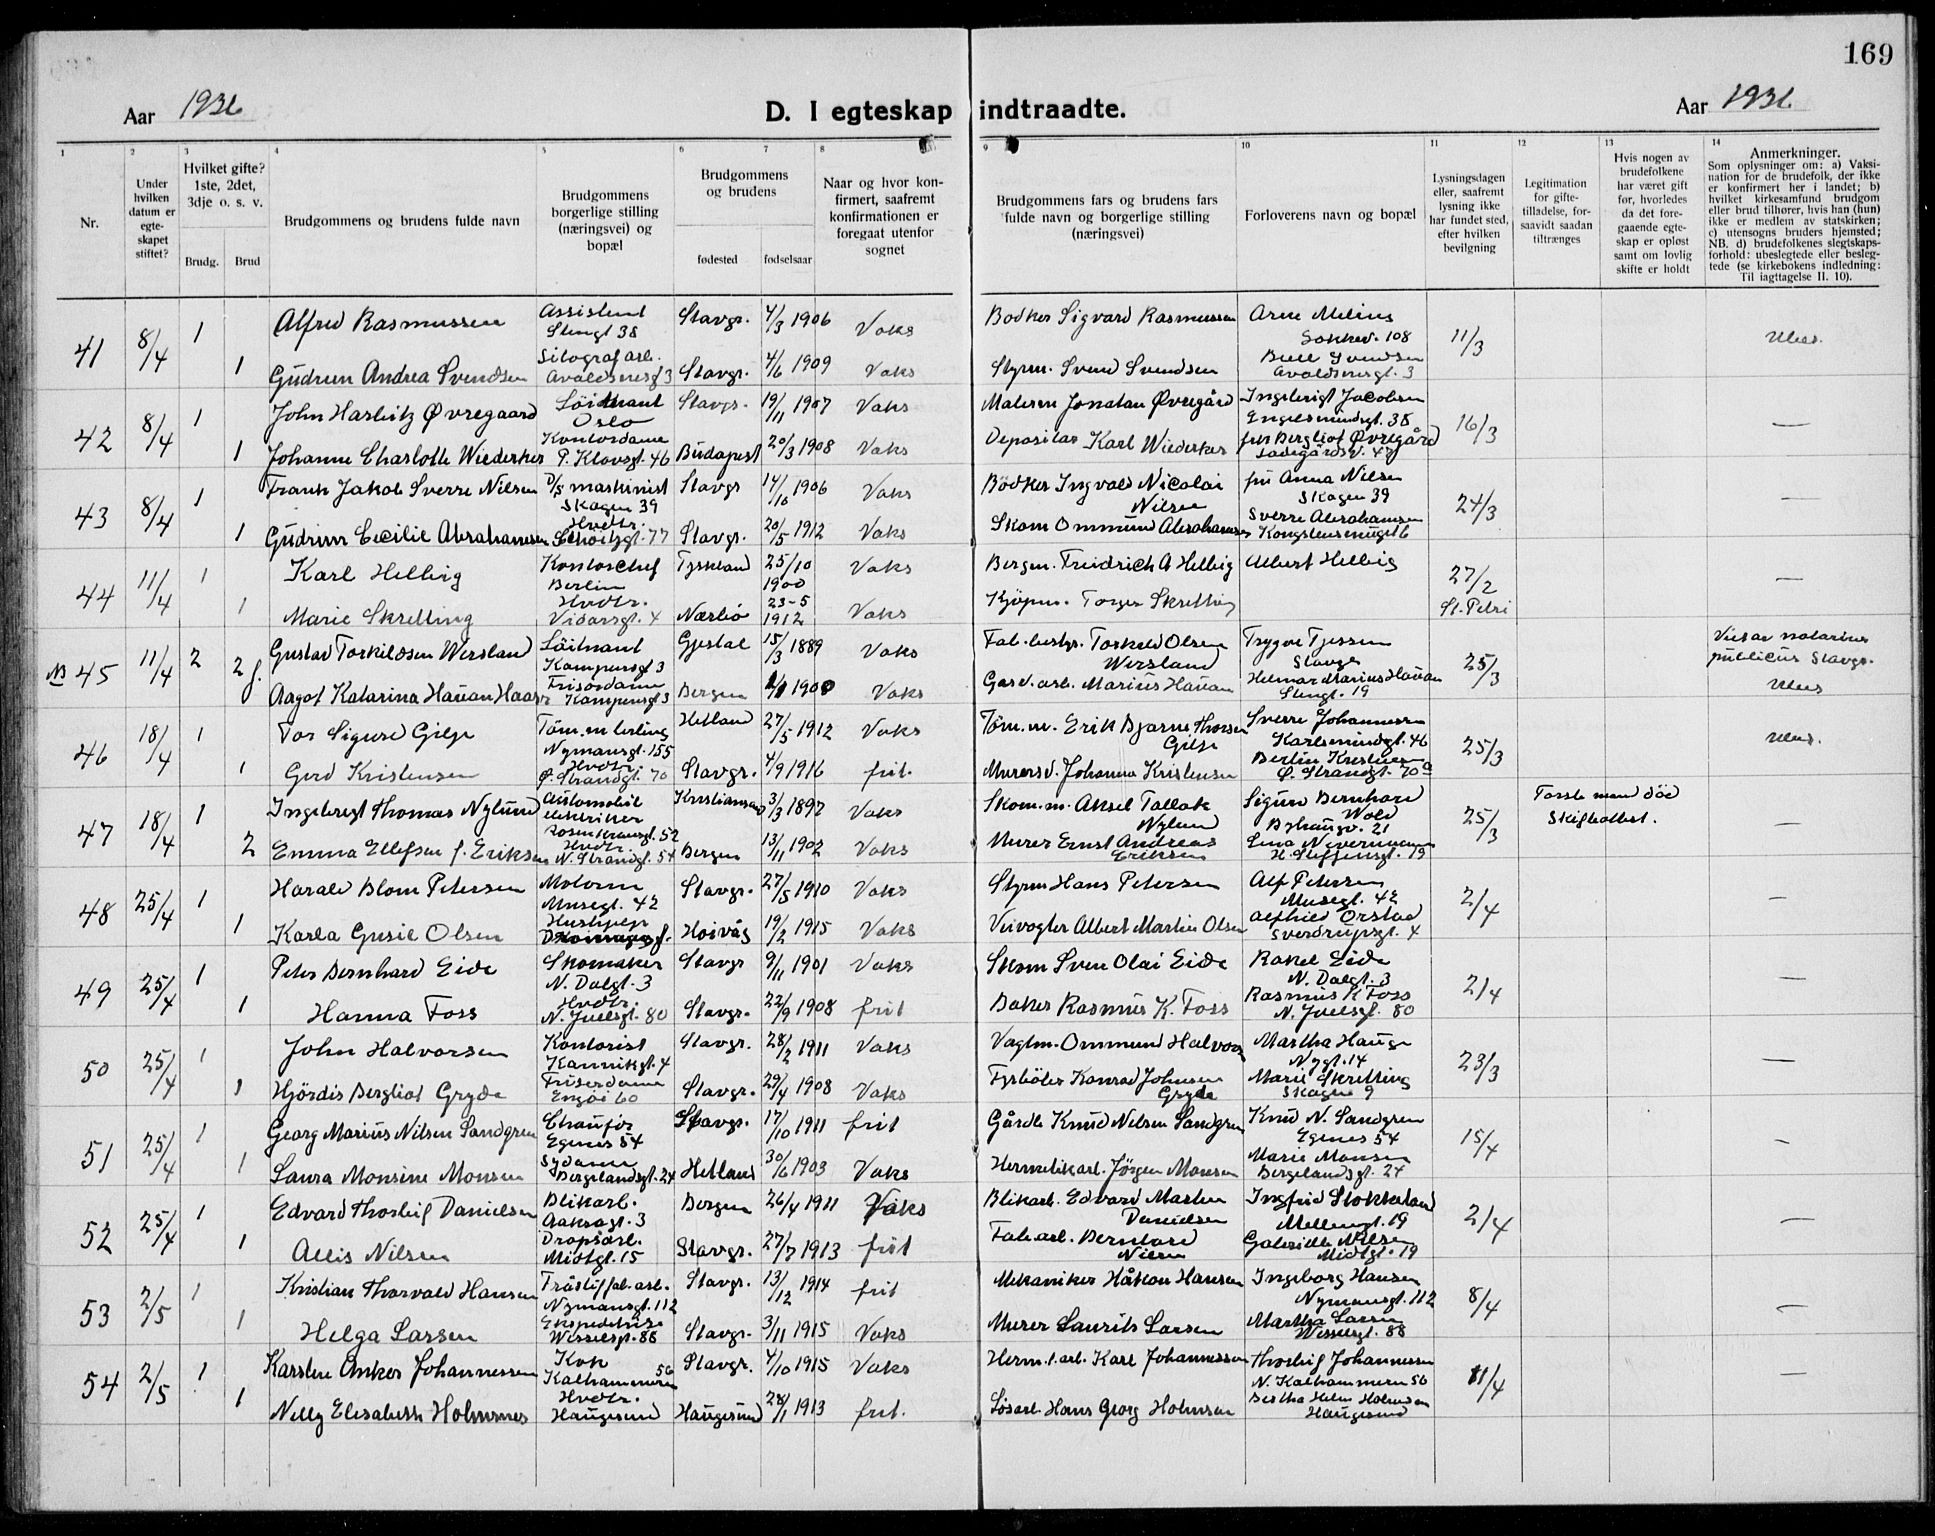 169
Aar 1936
D. I egteskap indtraadte.
Aar 1936
1 2 3 4 5 6 7 8 9 10 11 12 13 14
Nr.
Under hvilken datum er egte-skapet stiftet?
Hvilket gifte? 1ste, 2det, 3dje o. s. v.
Brudg. Brud
Brudgommens og brudens fulde navn
Brudgommens borgerlige stilling (næringsvei) og bopæl
Brudgommens og brudens
fødested fødselsaar
Naar og hvor kon-firmert, saafremt konfirmationen er foregaat utenfor sognet
Brudgommens fars og brudens fars fulde navn og borgerlige stilling (næringsvei)
Forloverens navn og bopæl
Lysningsdagen eller, saafremt lysning ikke har fundet sted, efter hvilken bevilgning
Legitimation for gifte-tilladelse, for-saavidt saadan tiltrænges
Hvis nogen av brudefolkene har været gift før, hvorledes da det fore-gaaende egte-skap er opløst samt om lovlig skifte er holdt
Anmerkninger.
Som oplysninger om: a) Vaksi-nation for de brudefolk, der ikke er konfirmert her i landet; b) hvilket kirkesamfund brudgom eller brud tilhører, hvis han (hun) ikke er medlem av statskirken; c) utensogns bruders hjemsted; NB. d) brudefolkenes slegtskaps-forhold: ubeslegtede eller besleg-tede (se kirkebokens indledning: Til iagttagelse II. 10).
41 8/4 1 Alfred Rasmussen Assistent Stengt 38 Stavgr. 4/3 1906 Vaks Bødker Sigvard Rasmussen Arne Melius 108 11/3 Ubes.
1 Gudrun Andrea Svendsen Litograf arb. Avaldsnesgt 3 Stavgr. 4/6 1909 Vaks Styrm. Svend Svendsen Svendsen Avaldsnesgt. 3
42 8/4 1 John Harbitz Øvregaard Löitnant Oslo Stavgr. 19/11 1907 Vaks Maleren Jonatan Øvregård Ingebrigt Jacobsen Engelsmindegt. 38 16/3 —
1 Johanne Charlotte Wiederker Kontordame P. Klovsgt. 46 Budapest 20/3 1908 Vaks Karl Wiederker fru Bergliot Øvregård
43 8/4 1 Frank Jakob Sverre Nilsen D/S maskinist Skagen 39 Stavgr 14/10 1906 Vaks Bödker Ingvald Nicolai Nilsen fru Anna Nilsen Skagen 39 24/3 —
1 Gudrun Cecilie Abrahamsen Hvdtr. 77 Stavgr. 20/5 1912 Vaks Skom Ommund Abrahamsen Sverre Abrahamsen
44 11/4 1 Karl Helbig Kontorchef Berlin Tyskland 25/10 1900 Vaks Bergm. Freidrich A Helbig Albert Helbig 27/2 St. Petri —
1 Marie Skretting Hvdtr. Vidarsgt. 4 Nærbö 23-5 1912 Vaks Kjöpm. Torger Skretting
NB 45 11/4 2 Gustav Torkildsen Wersland Löitnant Kampensgt 3 Gjestal 15/3 1889 Vaks Fab. bestyr. Torkeld Olsen Wersland Trygve Tjessem Stavgr 25/3 Viet av notarius publicus Stavgr.
2 f. Aagot Katarina Hauan Haaver Frisördame Kampensgt 3 Bergen 1900 Vaks Gasv. arb. Marius Hauan Helmar Marius Hauan Stengt. 19 Ubes
46 18/4 1 Tor Sigurd Gilje Töm.m lærling Nymansgt. 155 Hetland 27/5 1912 Vaks Töm. m. Erik Bjarne Thorsen Gilje Sverre Johannessen Karlsmindegt. 46 25/3 Ubes.
1 Gerd Kristensen Hvdtr. Ø. Strandgt. 70 Stavgr. 4/9 1916 frit. Murersv. Johannes Kristensen Bertin Kristensen Ø. Strandgt. 70a
47 18/4 1 Ingebregt Thomas Nylund Automobil elektriker Rosenkransgt. 52 Kristiansand 3/3 1897 Vaks Skom. m. Aksel Tallak Nylund Sigurd Bernhard Wold Byhaugv. 21 25/3 Forste mand död Skifteattest. —
2 Emma Ellefsen f. Eriksen Hvdtr. N. Strandgt. 54 Bergen 13/11 1902 Vaks Murer Ernst Andreas Eriksen Lina H. Steffensgt. 19
48 25/4 1 Harald Blom Petersen Motorm Musegt. 42 Stavgr. 27/5 1910 Vaks Styrm Hans Petersen Alf Petersen Musegt. 42 2/4 —
1 Karla Gusie Olsen Hushjelp Hoivåg 19/2 1915 Vaks Veivogter Albert Martin Olsen Alfhild Örstad Sverdrupsgt. 4
49 25/4 1 Peter Bernhard Eide Skomaker N. Dalgt. 3 Stavgr 9/11 1901 Vaks Skom Sven Olai Eide Rakel Eide N. Dalgt. 3 2/4 —
1 Hanna Foss Hvdtr. N. Juelsgt. 80 Stavgr. 22/9 1908 frit Baker Rasmus K. Foss Rasmus K Foss N. Juelsgt. 80
50 25/4 1 John Halvorsen Kontorist Kannikgt. 4 Stavgr. 28/2 1911 Vaks Vagtm. Ommund Halvors Martha Hauge Nygt. 14 23/3 —
1 Hjördis Bergliot Gryde Frisördame Engöi 60 Stavgr. 29/4 1908 Vaks Fyrböter Konrad Johnsen Gryde Marie Skretting Skagen 9
51 25/4 1 Georg Marius Nilsen Sandgren Chauför Egenes 54 Stavgr. 17/10 1911 frit Gårdb Knud Nilsen Sandgren Knud N. Sandgren Egenes 54 15/4 —
1 Laura Monsine Monsen Sydame Bergelandsgt. 24 Hetland 30/6 1903 Vaks Hermetikarb. Jörgen Monsen Marie Monsen Bergelandsgt. 24
52 25/4 1 Edvard Thorleif Danielsen Blikarb. Aaksagt. 3 Bergen 26/4 1911 Vaks Blikarb. Edvard Martin Danielsen Ingfrid Stokkeland 19 2/4 —
1 Allis Nilsen Dropsarb. Midtgt. 15 Stavgr. 27/7 1913 frit Fab. arb. Bernhard Nilsen Gabrielle Nilsen Midtgt. 19
53 2/5 1 Kristian Thorvald Hansen Tråstiffab. arb. Nymansgt. 112 Stavgr. 13/12 1914 frit Mekaniker Håkon Hansen Ingeborg Hansen Nymansgt. 112 8/4 —
1 Helga Larsen Ekspeditrise Wesselsgt. 88 Stavgr. 3/11 1915 Vaks Murer Laurits Larsen Martha Larsen Wesselsgt. 88
54 2/5 1 Karsten Anker Johannessen Kok Kalhammeren 56 Stavgr. 4/10 1915 Vaks Herm. f. arb. Karl Johannessen Thorleif Johannessen N. Kalhammeren 56 11/4 —
1 Nelly Elisabeth Holmenes Hvdtr. Haugesund Haugesund 28/1 1913 frit. Lösarb Hans Georg Holmsen Bertha Haugesund